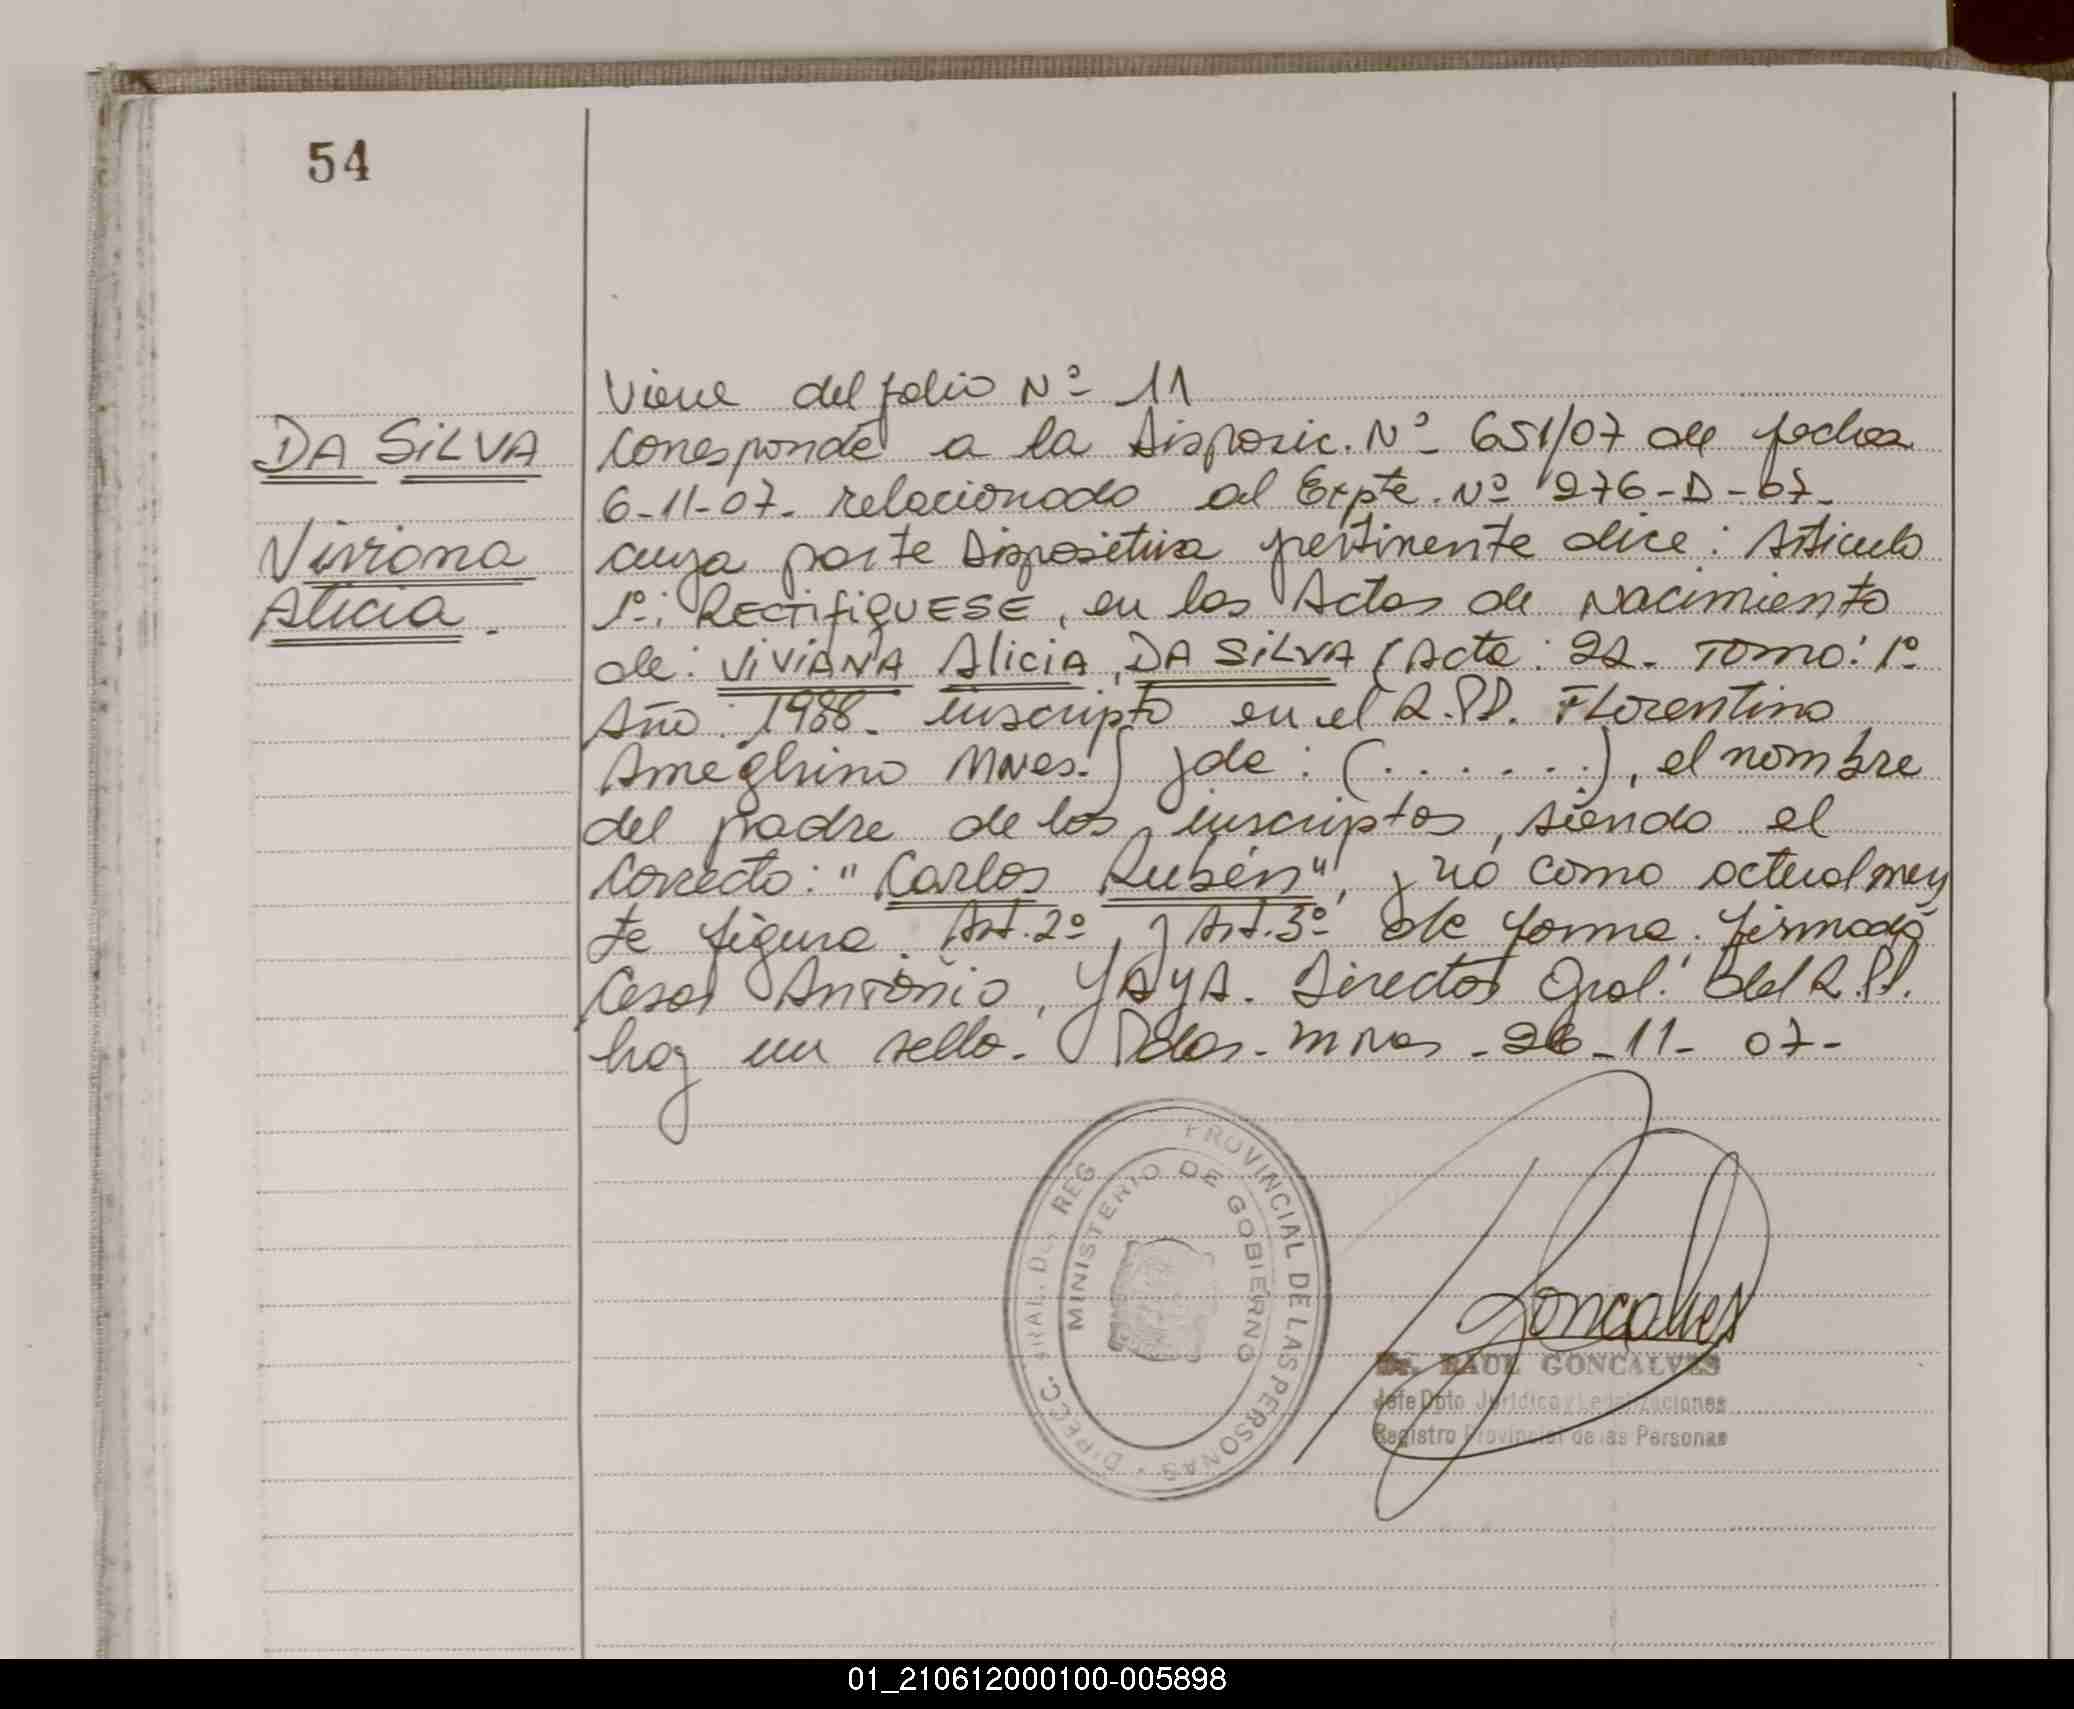 54
DA SILVA
Viviana
Alicia.
Viene del folio Nº 11
Corresponde a la Disposic. Nº 651/07 de fecha
6-11-07- relacionado al Expte. Nº 276-D-07-
cuya parte Dispositiva pertinente dice: Articulo
1º: RECTIFIQUESE, en las Actas de Nacimiento
de: VIVIANA Alicia, DA SILVA (Acta: 22- Tomo: 1º
Año: 1988- inscripto en el R.PP. Florentino
Ameghino Mnes.) y de: (.......), el nombre
del padre de los inscriptos, siendo el
Correcto: "Carlos Rubén", y no como actualmen
te figura. Art. 2º y Art. 3º de forma. firmado
Cesar Antonio, YAYA. Director Gral. del R.PP.
hay un sello. Pdas. Mnes - 26-11-07-
DIRECC. GRAL. DEL REG. PROVINCIAL DE LAS PERSONAS
MINISTERIO DE GOBIERNO
Goncalves
Dr. RAUL GONCALVES
Jefe Dpto Jurídica y Legalizaciones
Registro Provincial de las Personas
01_210612000100-005898